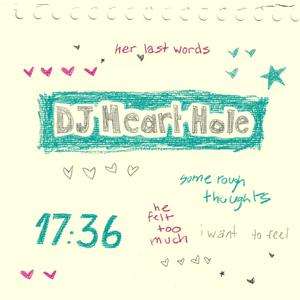 her last words
DJ Heart Hole
some rough
thoughts
17:36
he
felt
too
much
i want to feel